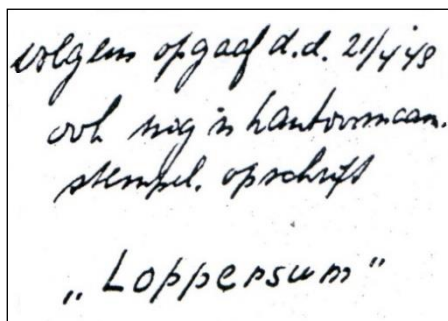 volgens opgaaf d.d. 21/4 '48
ook nog in kantoornaam.
stempel. opschrift
„Loppersum”